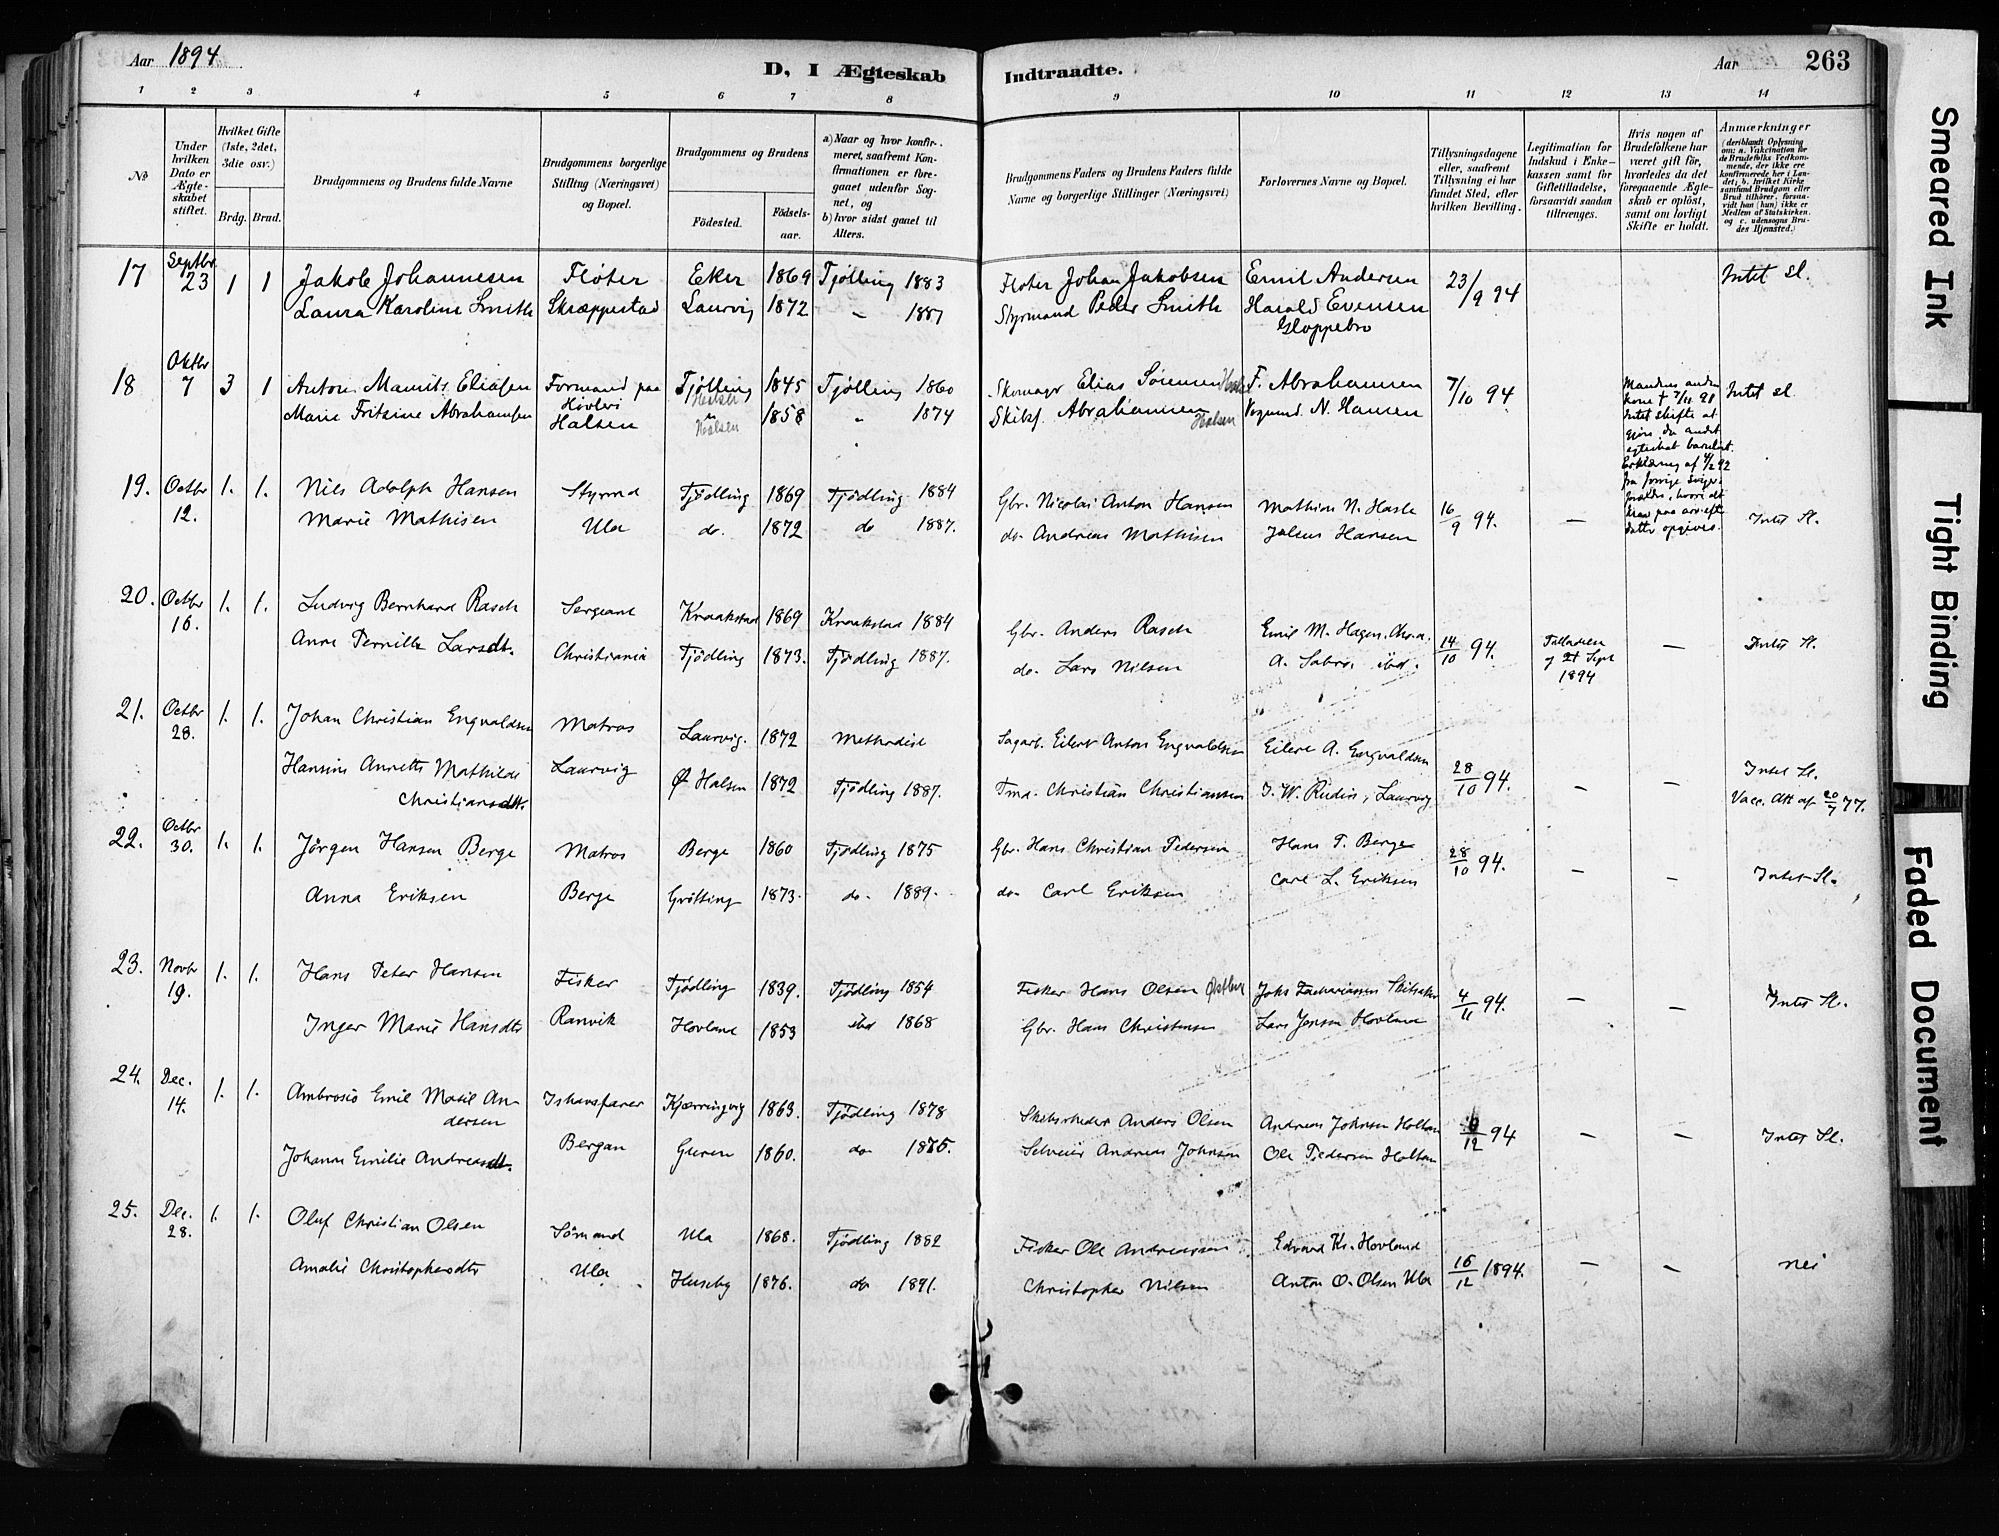 Aar 1894
D, I Ægteskab
Indtraadte.
Aar
263
1 2 3 4 5 6 7 8 9 10 11 12 13 14
No
Under hvilken Dato er Ægteskabet stiftet.
Hvilket Gifte (1ste, 2det, 3die osv.)
Brdg. Brud.
Brudgommens og Brudens fulde Navne
Brudgommens borgerlige Stilling (Næringsvei) og Bopæl.
Brudgommens og Brudens
Fødested.
Fødselsaar.
a) Naar og hvor konfirmeret, saafremt Konfirmationen er foregaaet udenfor Sognet, og
b) hvor sidst gaaet til Alters.
Brudgommens Faders og Brudens Faders fulde Navne og borgerlige Stillinger (Næringsvei)
Forlovernes Navne og Bopæl.
Tillysningsdagene eller, saafremt Tillysning ei har fundet Sted, efter hvilken Bevilling.
Legitimation for Indskud i Enkekassen samt for Giftetilladelse, forsaavidt saadan tiltrænges.
Hvis nogen af Brudefolkene har været gift før, hvorledes da det foregaaende Ægteskab er opløst, samt om lovligt Skifte er holdt.
Anmærkninger (deriblandt Oplysning om: a. Vakcination for de Brudefolks Vedkommende, der ikke ere konfirmerede her i Landet; b. hvilket Kirkesamfund Brudgom eller Brud tilhører, forsaavidt han (hun) ikke er Medlem af Statskirken, og c. udensogns Brudes Hjemsted.)
17 Septbr. 23 1 1 Jakob Johannesen Fløter Eker 1869 Tjølling 1883 Fløter Johan Jakobsen Emil Andersen 23/9 94 Intet sl.
Laura Karoline Smith Skræppestad Laurvig 1872 " 1887 Styrmand Peder Smith Harald Evensen
Gloppebro
18 Oktbr 7 3 1 Anton Maurits Eliasen Formand paa Tjølling 1845 Tjølling 1860 Skomagr Elias Sørensen F. Abrahamsen 7/10 94 Mandens anden Intet sl.
Marie Fritzine Abrahamsen Høvleri Halsen 1858 " 1874 Skibsf. Abrahamsen Halsen N. Hansen
Halsen
Intet skifte at
19. Octbr 12. 1. 1. Nils Adolph Hansen Styrmd Tjødling 1869 Tjødling 1884 Gbr. Nicolai Anton Hansen Mathias N. Hasle 16/9 94. — Intet Sl.
Marie Mathisen Ula do. 1872 do 1887. do. Andreas Mathisen Julius Hansen
20. Octbr 16. 1. 1. Ludvig Bernhard Rasch Sergeant Kraakstad 1869 Kraakstad 1884 Gbr. Anders Rasch Emil M. Hagen, Chr.a. 14/10 94. Tilladelse — Intet Sl.
Anne Pernille Larsdt. Christiania Tjødling 1873. Tjødling 1887. do. Lars Nilsen A. Sabro, ibd. af 21 Sept
1894
21. Octbr 28. 1. 1. Johan Christian Engvaldsen Matros Laurvig. 1872 Methodist Sagarb. Eilert Anton Engvaldsen Eilert A. Engvaldsen 28/10 94. — — Intet Sl.
Hansine Annette Mathilde Laurvig Ø Halsen 1872 Tjødling 1887. Tmd. Christian Christiansen J. W. Rudin, Laurvig Vacc. Att af 20/7 77.
Christiansdt.
22. Octbr 30. 1. 1. Jørgen Hansen Berge Matros Berge 1860 Tjødling 1875 Gbr. Hans Christian Pedersen Hans P. Berge 28/10 94. — — Intet Sl.
Anna Eriksen Berge Grøtting 1873. do. 1889. do. Carl Eriksen Carl L. Eriksen
23. Novbr 19. 1. 1. Hans Peter Hansen Fisker Tjødling 1839. Tjødling 1854 Fisker Hans Olsen Østbø Johs Zachariassen 4/11 94. — — Intet Sl.
Inger Marie Hansdtr Ranvik Hovland 1853 ibd 1868 Gbr. Hans Christensen Lars Jensen Hovland
24. Dec. 14. 1. 1. Ambrosio Emil Matil An- Ishavsfarer Kjærringvig 1863. Tjødling 1878 Skibsrheder Anders Olsen Andreas Johnsen Holtan 9/12 94 — — Intet Sl.
dersen
Johanne Emilie Andreasdt. Bergan Guren 1860. do 1875. Selveier Andreas Johnsen Ole Pedersen Holtan
25. Dec. 28. 1. 1. Oluf Christian Olsen Sømand Ula 1868. Tjødling 1882 Fisker Ole Andreassen Edvard Kr. Hovland 16/12 1894. — — nei
Amalie Christophersdtr Ula Huseby 1876. do 1891. Christopher Nilsen Anton O. Olsen Ula
Smeared Ink
Tight Binding
Faded Document